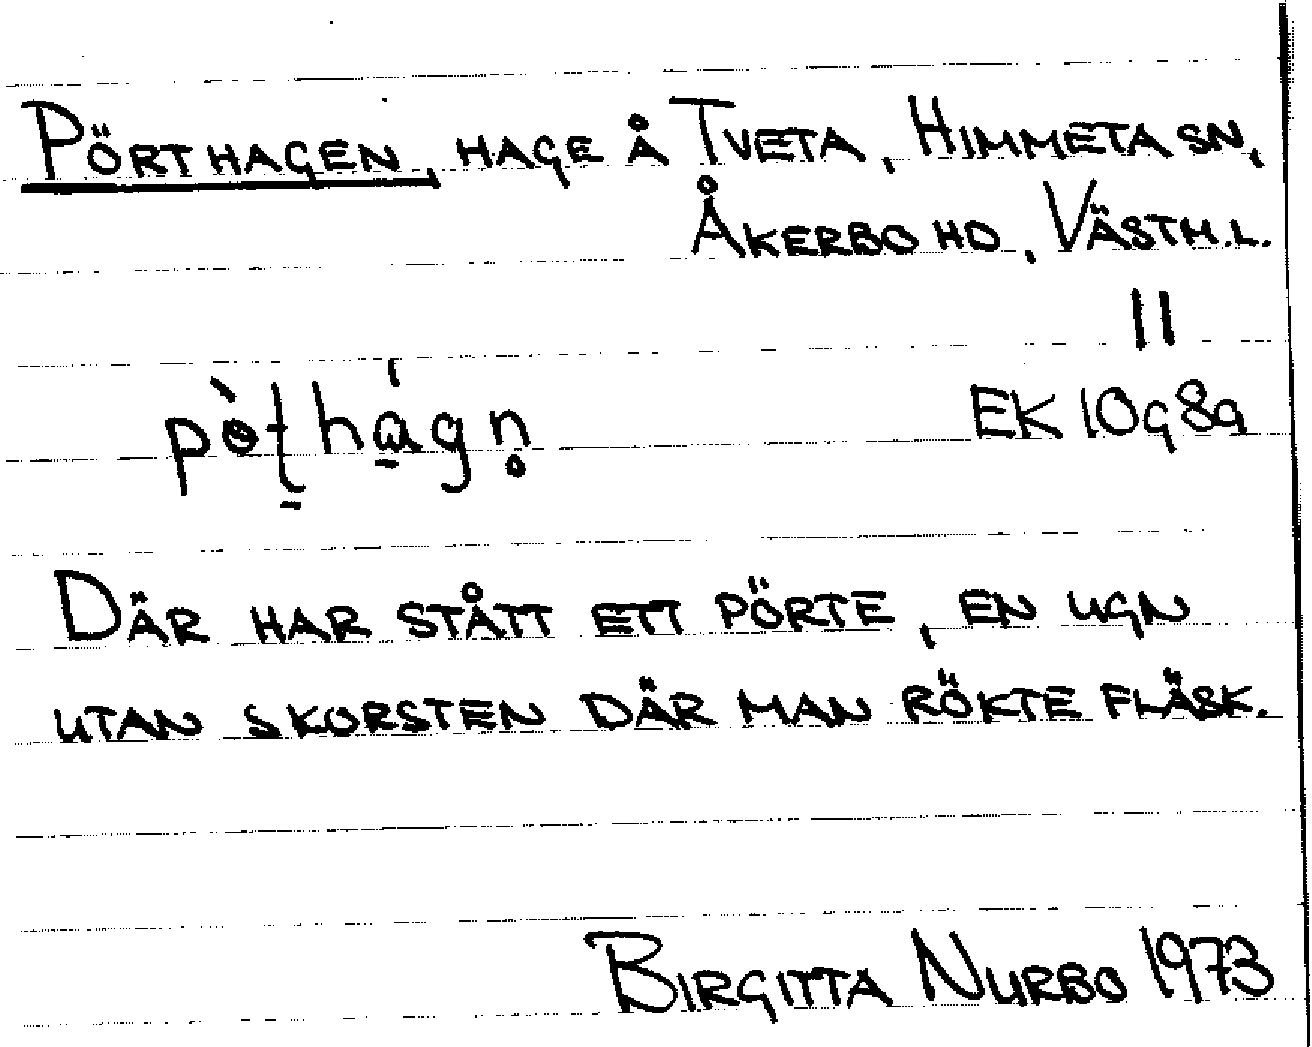 PÖRTHAGEN, HAGE Å TVETA, HIMMETA SN,
ÅKERBO HD, VÄSTM.L.
11
EK 10g8a
DÄR HAR STÅTT ETT PÖRTE, EN UGN
UTAN SKORSTEN DÄR MAN RÖKTE FLÄSK.
BIRGITTA NURBO 1973